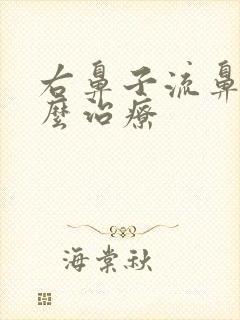 右鼻子流鼻
麽治療
海棠秋